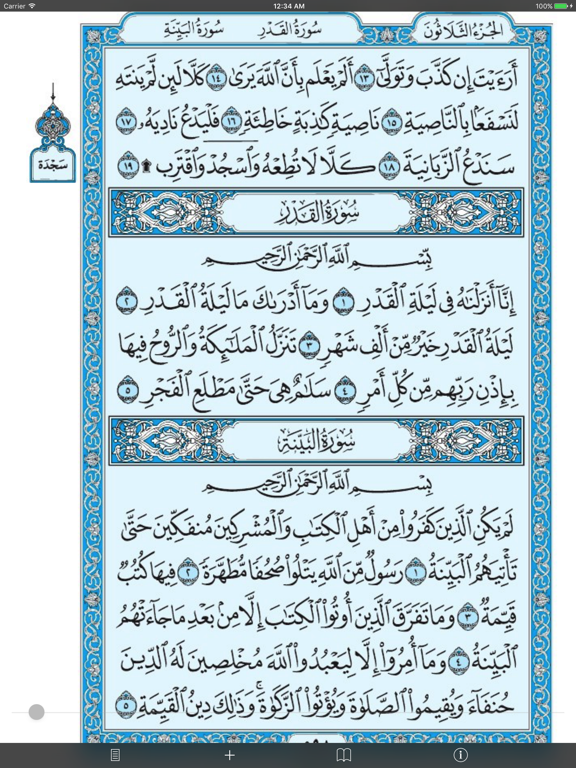 Carrier 12:34 AM 100%
الجُزْءُ الثَّلَاثُونَ سُورَةُ القَدْرِ سُورَةُ البَيِّنَةِ
أَرَءَيْتَ إِن كَذَّبَ وَتَوَلَّىٰٓ ١٣ أَلَمْ يَعْلَم بِأَنَّ ٱللَّهَ يَرَىٰ ١٤ كَلَّا لَئِن لَّمْ يَنتَهِ
لَنَسْفَعًۢا بِٱلنَّاصِيَةِ ١٥ نَاصِيَةٍ كَٰذِبَةٍ خَاطِئَةٍ ١٦ فَلْيَدْعُ نَادِيَهُۥ ١٧
سَنَدْعُ ٱلزَّبَانِيَةَ ١٨ كَلَّا لَا تُطِعْهُ وَٱسْجُدْ وَٱقْتَرِب ۩ ١٩
سَجْدَة
سُورَةُ القَدْرِ
بِسْمِ ٱللَّهِ ٱلرَّحْمَٰنِ ٱلرَّحِيمِ
إِنَّآ أَنزَلْنَٰهُ فِى لَيْلَةِ ٱلْقَدْرِ ١ وَمَآ أَدْرَىٰكَ مَا لَيْلَةُ ٱلْقَدْرِ ٢
لَيْلَةُ ٱلْقَدْرِ خَيْرٌ مِّنْ أَلْفِ شَهْرٍ ٣ تَنَزَّلُ ٱلْمَلَٰٓئِكَةُ وَٱلرُّوحُ فِيهَا
بِإِذْنِ رَبِّهِم مِّن كُلِّ أَمْرٍ ٤ سَلَٰمٌ هِىَ حَتَّىٰ مَطْلَعِ ٱلْفَجْرِ ٥
سُورَةُ البَيِّنَةِ
بِسْمِ ٱللَّهِ ٱلرَّحْمَٰنِ ٱلرَّحِيمِ
لَمْ يَكُنِ ٱلَّذِينَ كَفَرُوا۟ مِنْ أَهْلِ ٱلْكِتَٰبِ وَٱلْمُشْرِكِينَ مُنفَكِّينَ حَتَّىٰ
تَأْتِيَهُمُ ٱلْبَيِّنَةُ ١ رَسُولٌ مِّنَ ٱللَّهِ يَتْلُوا۟ صُحُفًا مُّطَهَّرَةً ٢ فِيهَا كُتُبٌ
قَيِّمَةٌ ٣ وَمَا تَفَرَّقَ ٱلَّذِينَ أُوتُوا۟ ٱلْكِتَٰبَ إِلَّا مِنۢ بَعْدِ مَا جَآءَتْهُمُ
ٱلْبَيِّنَةُ ٤ وَمَآ أُمِرُوٓا۟ إِلَّا لِيَعْبُدُوا۟ ٱللَّهَ مُخْلِصِينَ لَهُ ٱلدِّينَ
حُنَفَآءَ وَيُقِيمُوا۟ ٱلصَّلَوٰةَ وَيُؤْتُوا۟ ٱلزَّكَوٰةَ ۚ وَذَٰلِكَ دِينُ ٱلْقَيِّمَةِ ٥